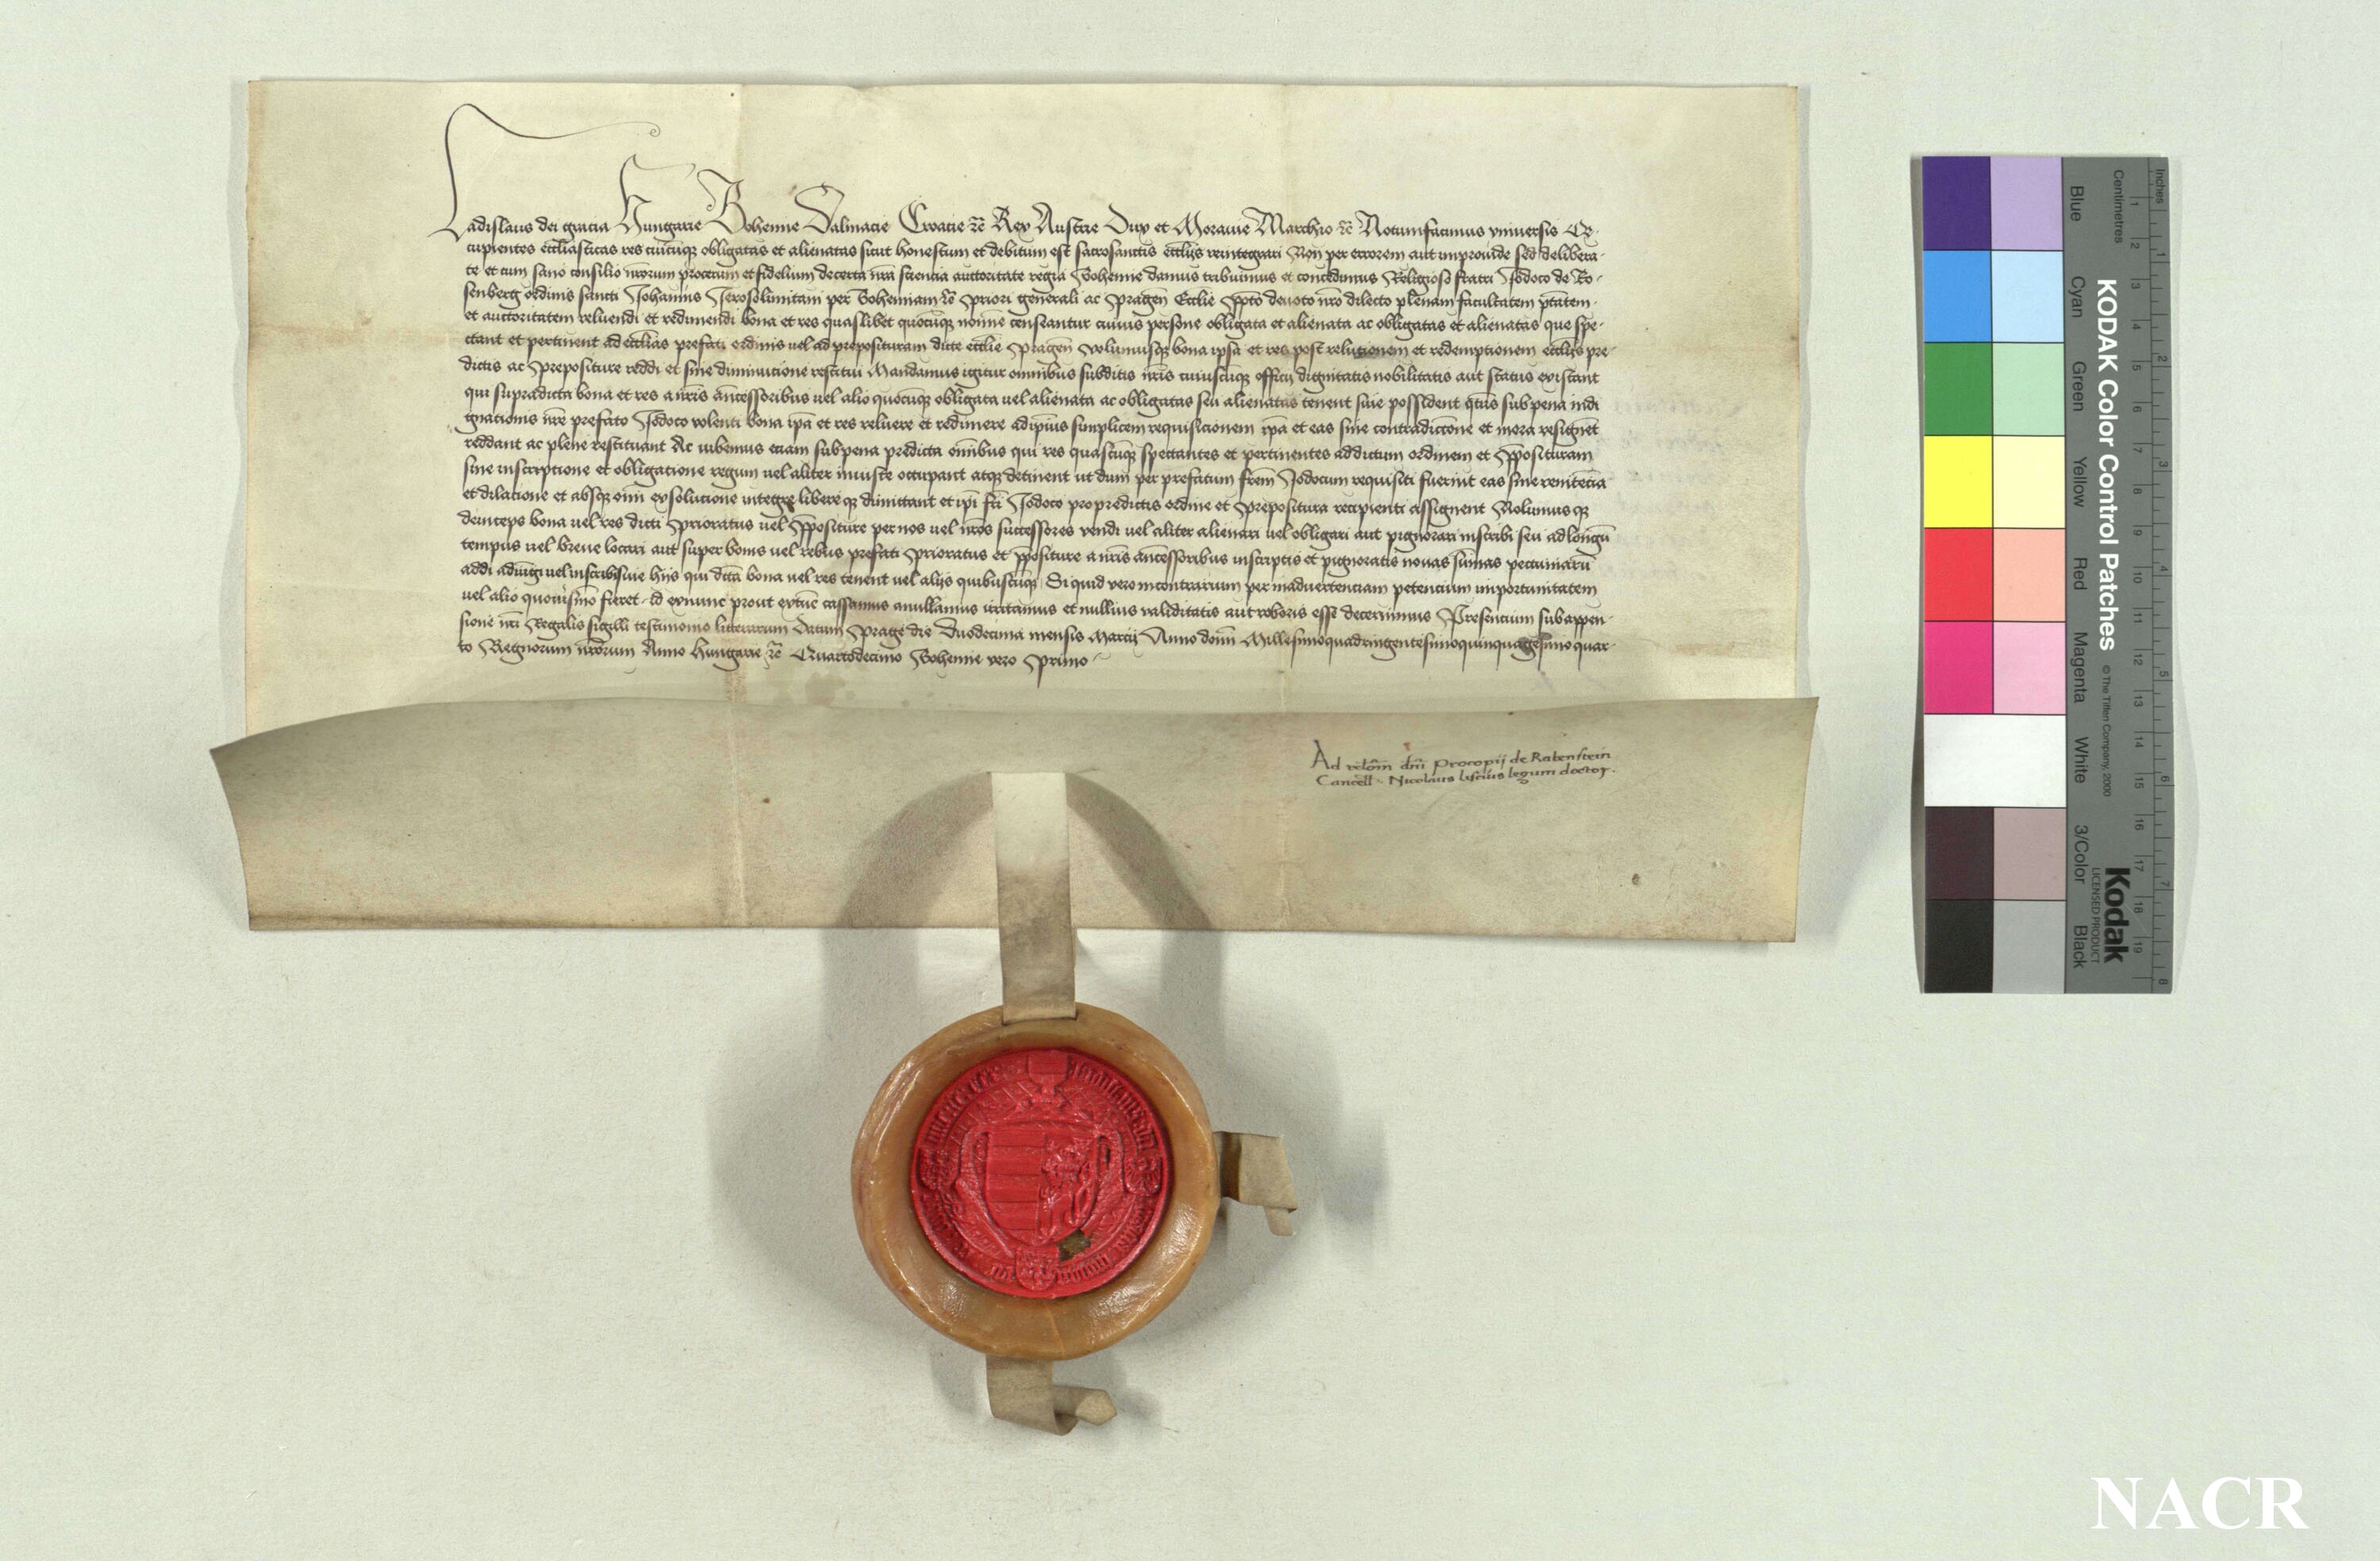 Ladislaus dei gracia Hungarie Bohemie Dalmacie Croacie rc̄ Rex Austrie Dux et Moravie Marchio rc̄ Notumfacimus vniuersis Cu-
cupientes ecclīasticas res cuicūqꝫ obligatas et alienatas sicut honestum et debitum est sacrosanctis ecclijs reintegrari Non per errorem aut improuide sed delibera-
te et cum sano consilio nrōrum procerum et fidelium decerta nrā sciencia auctoritate regia Bohemie damus tribuimus et concedimus Religioso fratri Jodoco de Ro-
senberg ordinis sancti Johannis Jerosolimitani per Bohemiam rc̄ priori generali ac pragen̄ Ecclīe ppto deuoto nrō dilecto plenam facultatem ptātem
et auctoritatem reluendi et redimendi bona et res quaslibet quocūqꝫ noīne censeantur cuiuis persone obligata et alienata ac obligatas et alienatas que spe-
ctant et pertinent ad ecclīas prefati ordinis uel ad preposituram dicte ecclīe pragen̄ volumusqꝫ bona ipsa et res post relucionem et redempcionem ecclijs pre-
dictis ac prepositure reddi et sine diminucione restitui Mandamus igitur omnibus subditis nrīs cuiuscūqꝫ officij dignitatis nobilitatis aut status existant
qui supradicta bona et res a nrīs ancēssoribus uel alio quocūqꝫ obligata uel alienata ac obligatas seu alienatas tenent siue possident qtūs sub pena indi
gnationis nrē prefato Jodoco volenti bona ipā et res reluere et redimere ad ipīus simplicem requisicionem ipā et eas sine contradiccōne et mora resignēt
reddant ac plene restituant Ac iubemus eciam sub pena predicta omībus qui res quascūqꝫ spectantes et pertinentes ad dictum ordinem et pposituram
sine inscriptione et obligatione regum uel aliter iniuste occupant atqꝫ detinent ut dum per prefatum frēm Jodocum requisiti fuerint eas sine renitēcia
et dilacione et absqꝫ omī exsolucione integre libereqꝫ dimittant et ipī frī Jodoco pro predictis ordine et prepositura recipienti assignent Nolumusqꝫ
deinceps bona uel res dicti prioratus uel ppositure per nos uel nrōs successores vendi uel aliter alienari uel obligari aut pignorari inscribi seu ad longū
tempus uel breue locari aut super bonis uel rebus prefati prioratus et ppositure a nrīs ancēssoribus inscriptis et pignoratis nouas sumas pecuniarū
addi adiungi uel inscribi siue hijs qui dictā bona uel res tenent uel alijs quibuscūqꝫ Si quid vero incontrarium per inaduertenciam petencium importunitatem
uel alio quouismō fieret id exnunc prout extūc cassamus anullamus irritamus et nullius validitatis aut roboris esse decernimus Presencium sub appen-
sione nrī Regalis sigilli testimonio litterarum Datum prage die Duodecima mensis Marcij Anno domī Millesimoquadringentesimoquinquagesimoquar-
to Regnorum nrōrum Anno Hungarie rc̄ Quartodecimo Bohemie vero primo
Ad relōm dn̄i Procopij de Rabenstein
Cancell Nicolaus liscius legum doctor
KODAK Color Control Patches
© The Tiffen Company, 2000
Kodak
LICENSED PRODUCT
Inches
Centimetres
Blue
Cyan
Green
Yellow
Red
Magenta
White
3/Color
Black
1 2 3 4 5 6 7 8 9 10 11 12 13 14 15 16 17 18 19
1 2 3 4 5 6 7 8
NACR